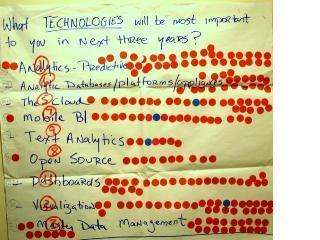 What TECHNOLOGIES will be most important
to you in next three years?
Analytics - Predictive
Analytic Databases/platforms/appliances
The Cloud
Mobile BI
Text Analytics
Open Source
Dashboards
Visualization
Master Data Management